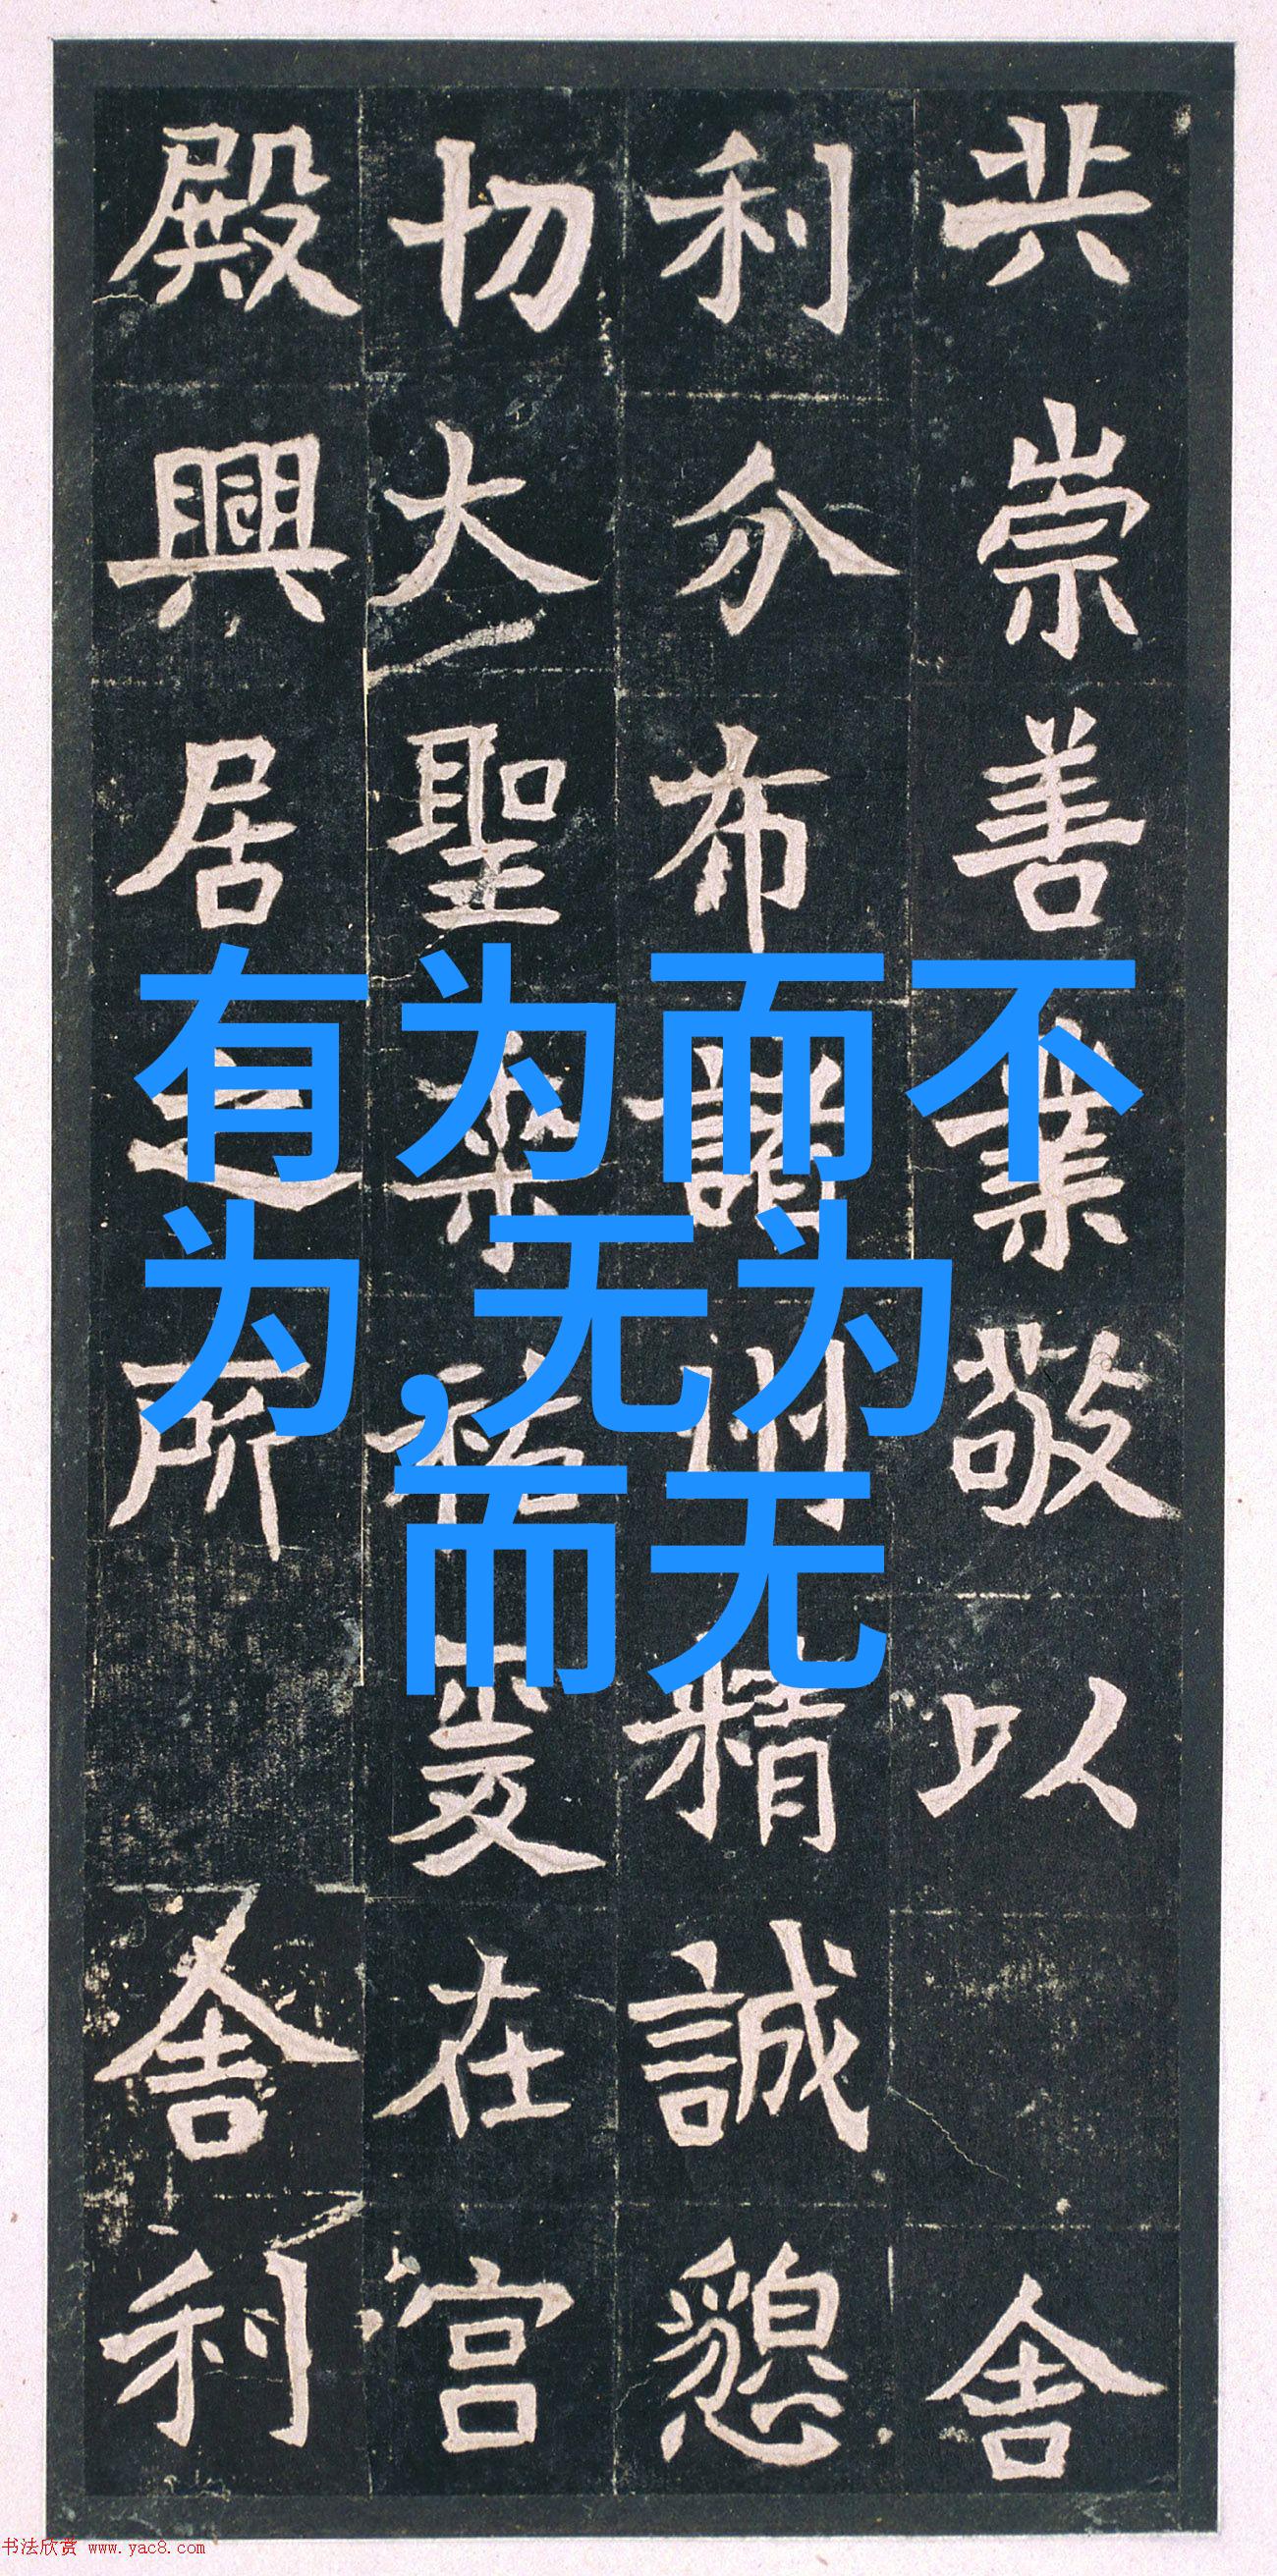 共崇善業敬以舍
利分布諸州精誠懇
切大聖垂祐爰在宮
殿興居之所舍利
有为而不
为,无为
而无
书法欣赏 www.yac8.com